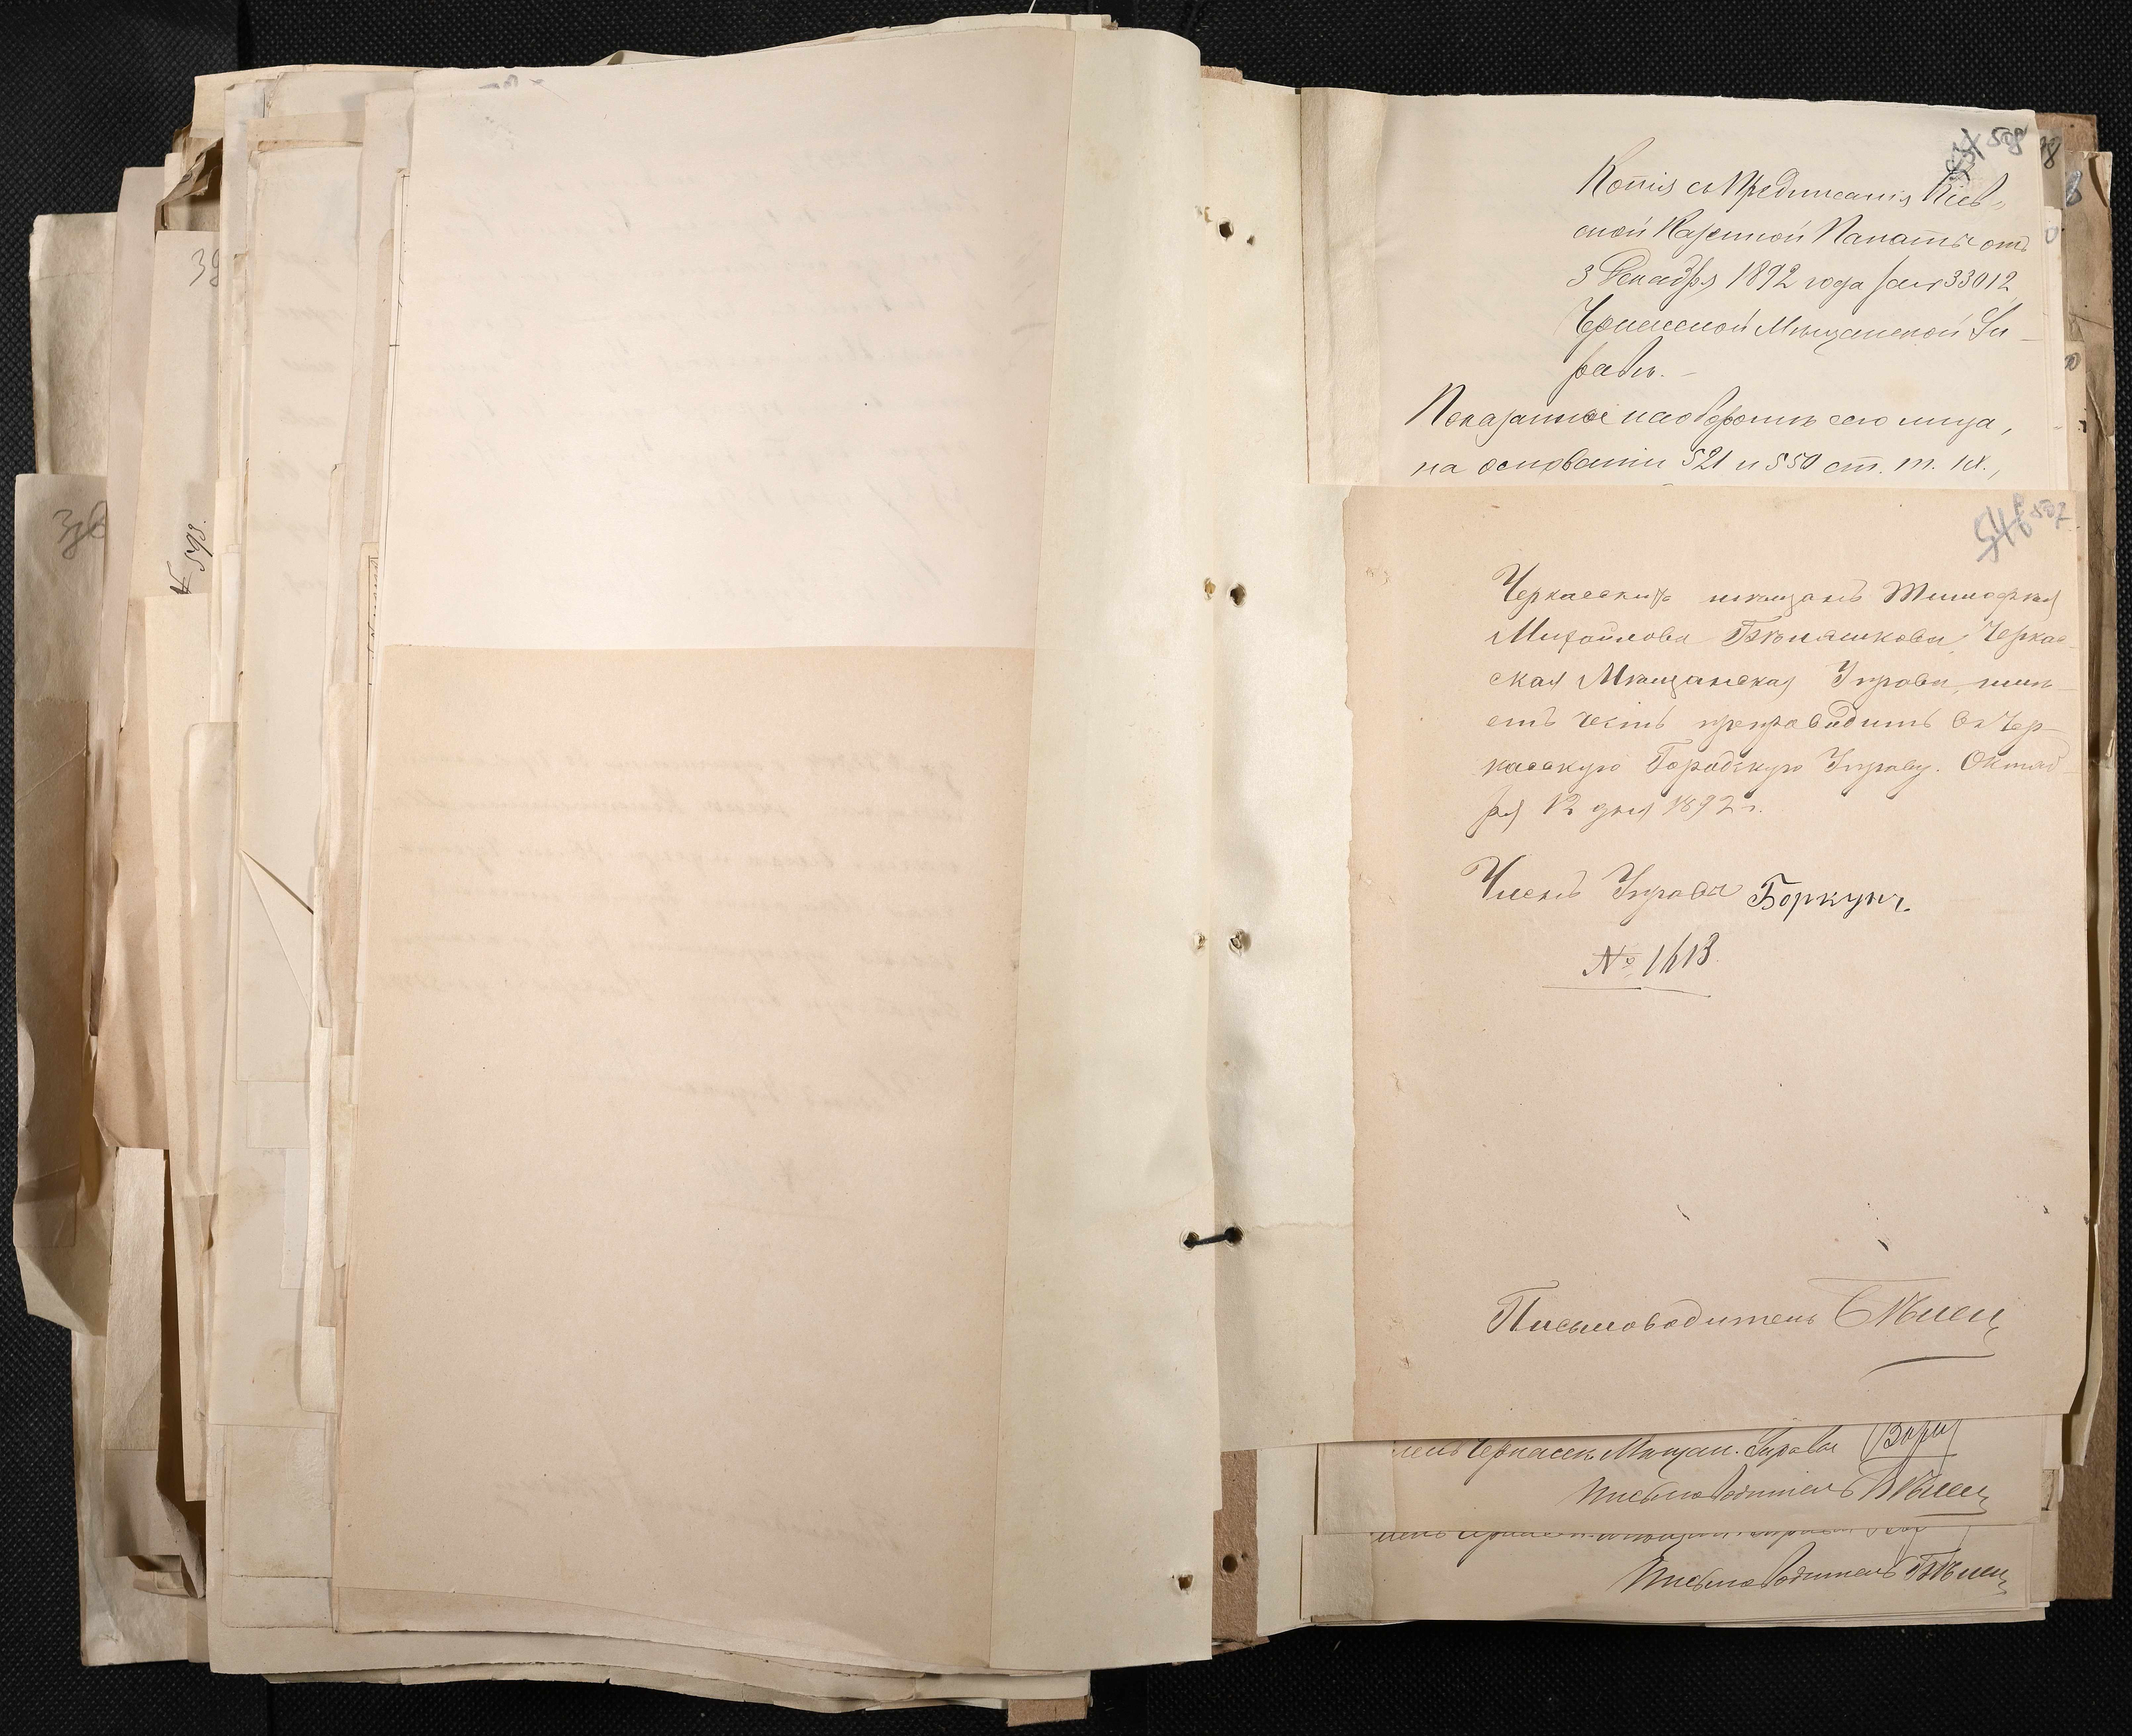 508
Копія съ Предписанія Кіев-
ской Казенной Палаты отъ
3 Декабря 1892 года за № 33012
Черкасской Мѣщанской Уп-
равѣ. –
Показанные на оборотѣ сего лица,
на основаніи 521 и 550 ст. т. IX.,
546 507
Черкасскихъ мѣщанъ Тимофея
Михайлова Бѣляшкова, Черкас-
ская Мѣщанская Управа, имѣ-
етъ честь препроводить въ Чер-
касскую Городскую Управу. Октяб-
ря 12 дня 1892 г.
Членъ Управы Боркунъ
№ 1413.
Письмоводитель Бѣлец
Черкасск. Мѣщан. Управы
Письмоводитель Бѣлец
Письмоводитель Бѣлец
№ 593.